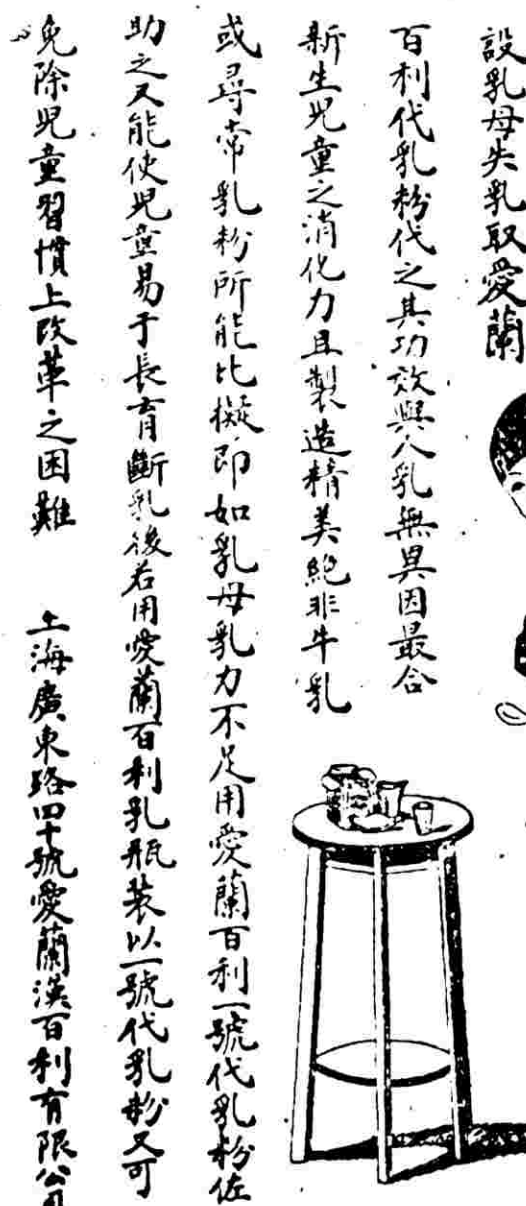 設乳母失乳取愛蘭
百利代乳粉代之其功效與人乳無異因最合
新生兒童之消化力且製造精美絕非牛乳
或尋常乳粉所能比擬即如乳母乳力不足用愛蘭百利一號代乳粉佐
助之又能使兒童易于長育斷乳後若用愛蘭百利乳瓶裝以一號代乳粉又可
免除兒童習慣上改革之困難
上海廣東路四十號愛蘭漢百利有限公司